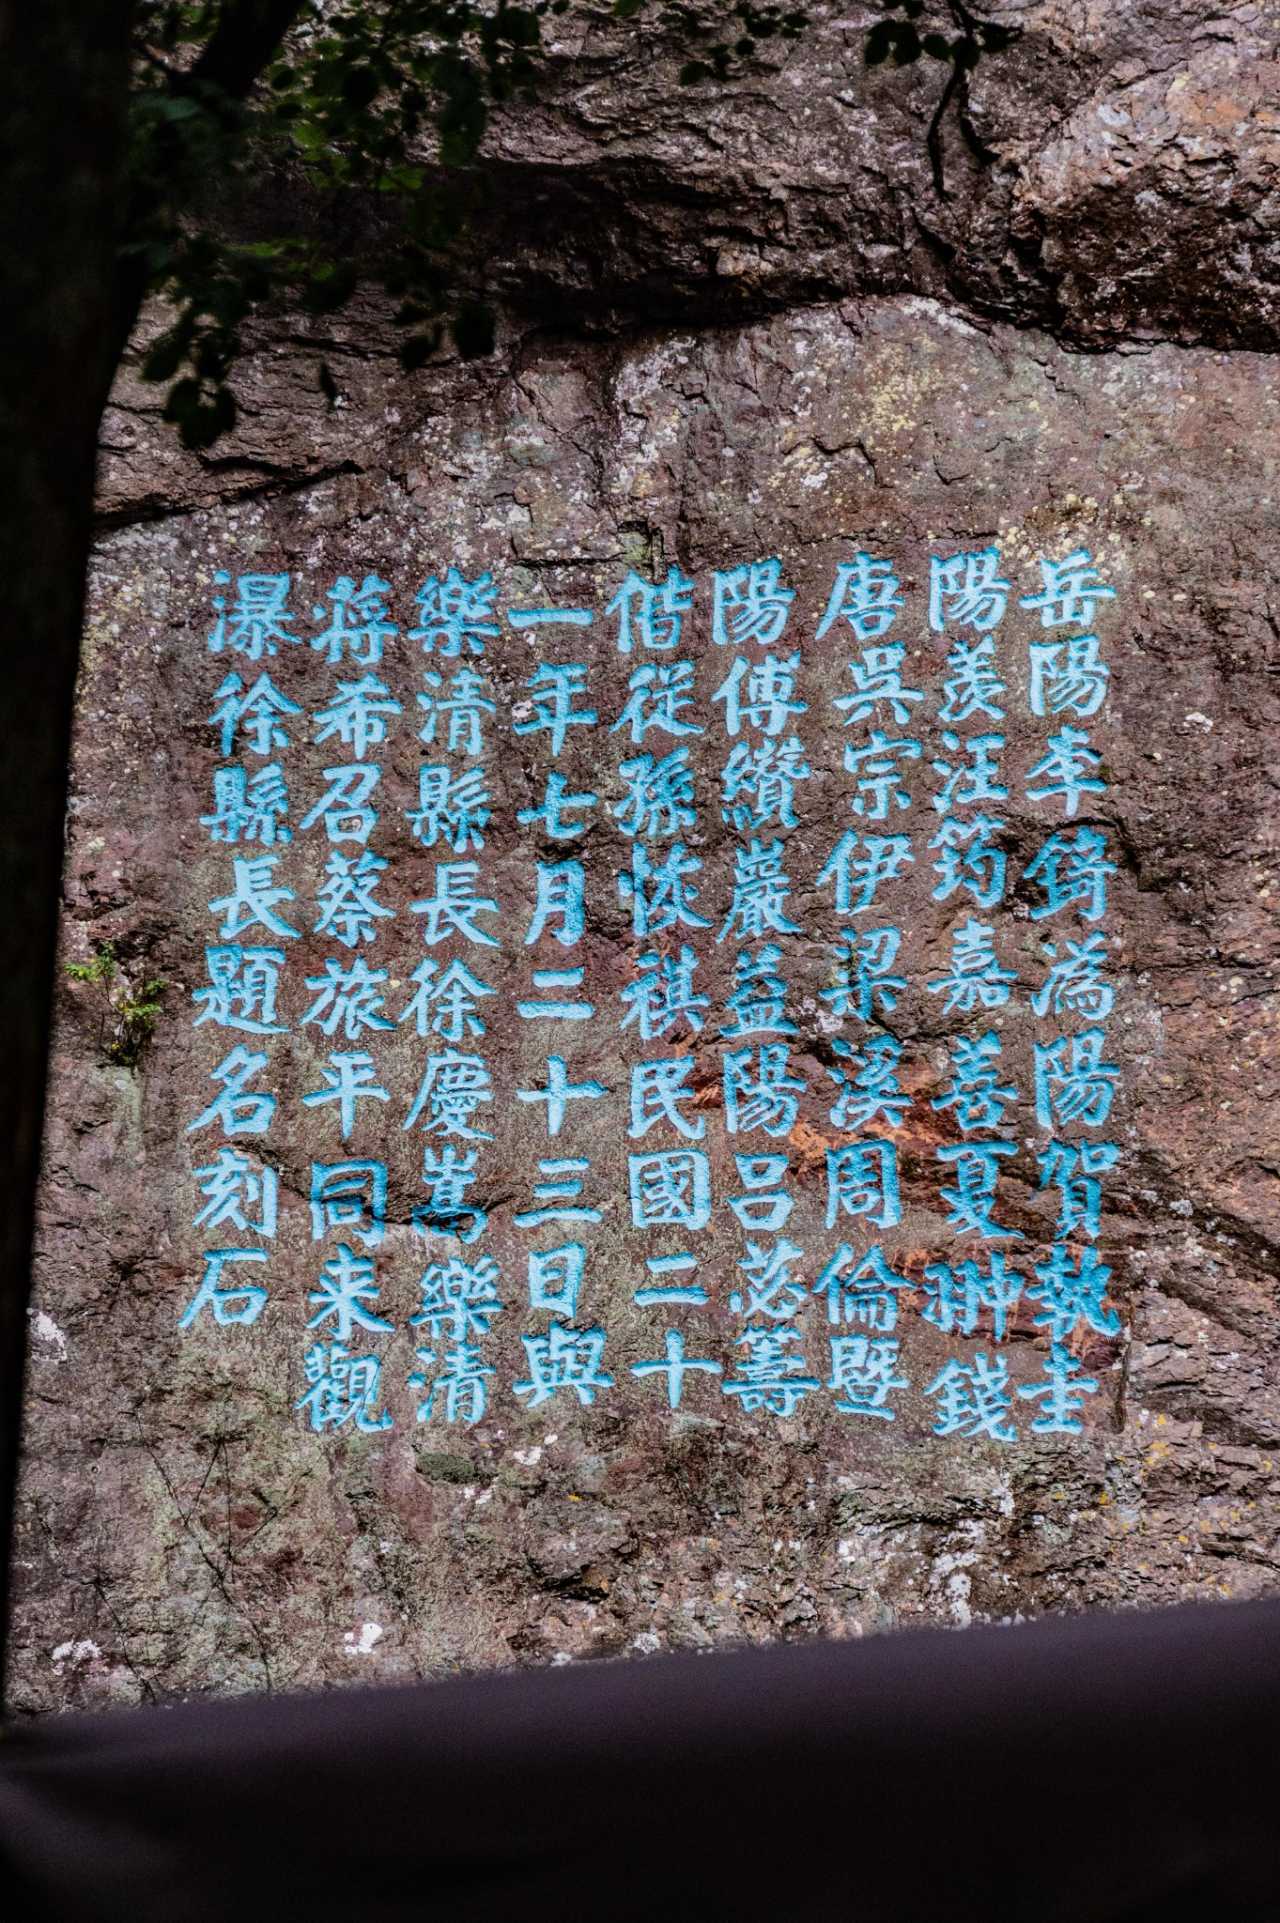 岳陽李錡為陽賀執圭
陽羨汪筠嘉善夏翀錢
唐吳宗伊梁溪周倫暨
陽傅纘巖益陽呂苾籌
偕從孫恢祺民國二十
一年七月二十三日與
樂清縣長徐慶嵩樂清
蔣希召蔡旅平同来觀
瀑徐縣長題名刻石